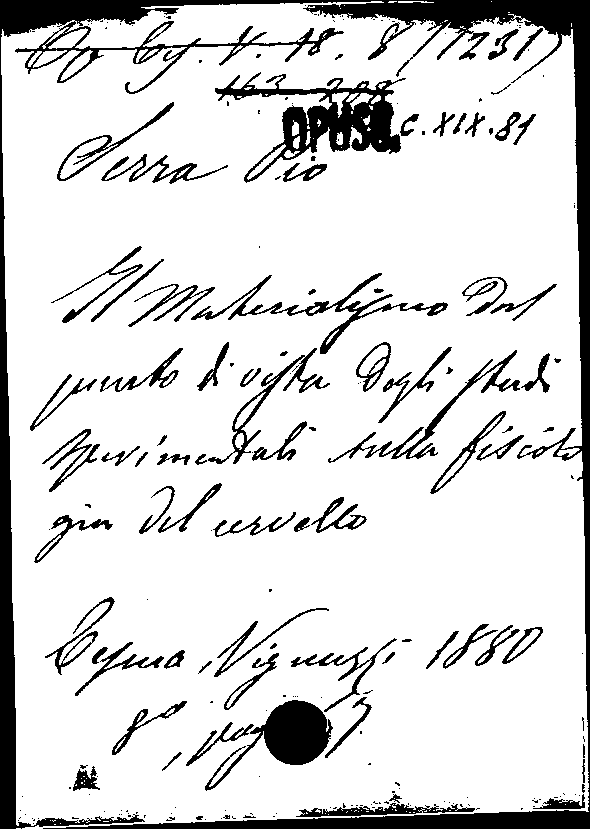 Op Ces. V. 18. 8 (1231)
163. 208
OPUSC. C. XIX. 81
Serra Pio
Il Materialismo dal
punto di vista degli studi
sperimentali sulla fisiolo
gia del cervello
Cesena, Vignuzzi 1880
8°, pag 7